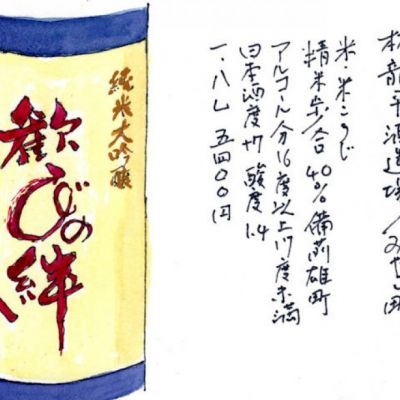 純米大吟醸
歓びの絆
龍平酒造場
米、米こうじ
精米歩合 40% 備前雄町
アルコール分16度以上17度未満
日本酒度+7 酸度1.4
一.八L 五四〇〇円